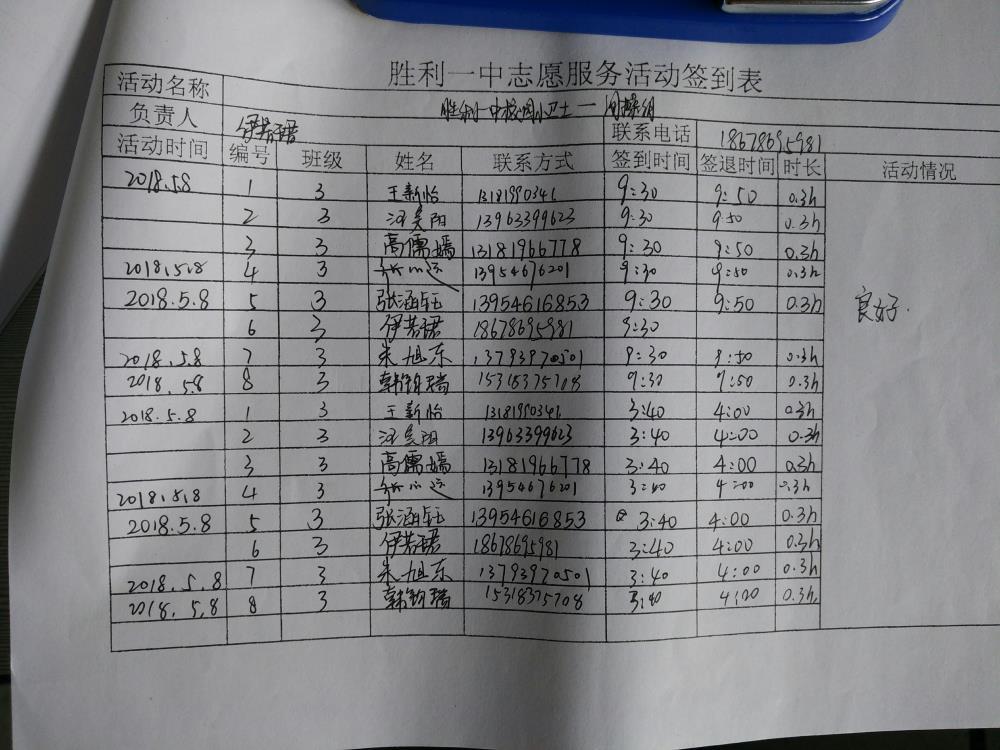 胜利一中志愿服务活动签到表
活动名称 胜利一中校园小卫士一
负责人 伊若珺 联系电话 18678695981
活动时间 编号 班级 姓名 联系方式 签到时间 签退时间 时长 活动情况
2018.5.8 1 3 王新怡 13181990341 9:30 9:50 0.3h
2 3 13963399623 9:30 9:50 0.3h
3 3 高儒嫣 13181966778 9:30 9:50 0.3h
2018.5.8 4 3 13954676201 9:30 9:50 0.3h
2018.5.8 5 3 张涵钰 13954616853 9:30 9:50 0.3h 良好.
6 3 伊若珺 18678695981 9:30
2018.5.8 7 3 朱旭东 13793970501 9:30 9:50 0.3h
2018.5.8 8 3 15318375708 9:30 9:50 0.3h
2018.5.8 1 3 王新怡 13181990341 3:40 4:00 0.3h
2 3 13963399623 3:40 4:00 0.3h
3 3 高儒嫣 13181966778 3:40 4:00 0.3h
2018.5.8 4 3 13954676201 3:40 4:00 0.3h
2018.5.8 5 3 张涵钰 13954616853 3:40 4:00 0.3h
6 3 伊若珺 18678695981 3:40 4:00 0.3h
2018.5.8 7 3 朱旭东 13793970501 3:40 4:00 0.3h
2018.5.8 8 3 15318375708 3:40 4:00 0.3h.